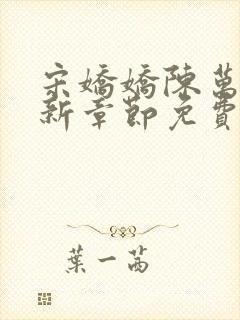 宋嬌嬌陳萬
新章節免費
葉一茜